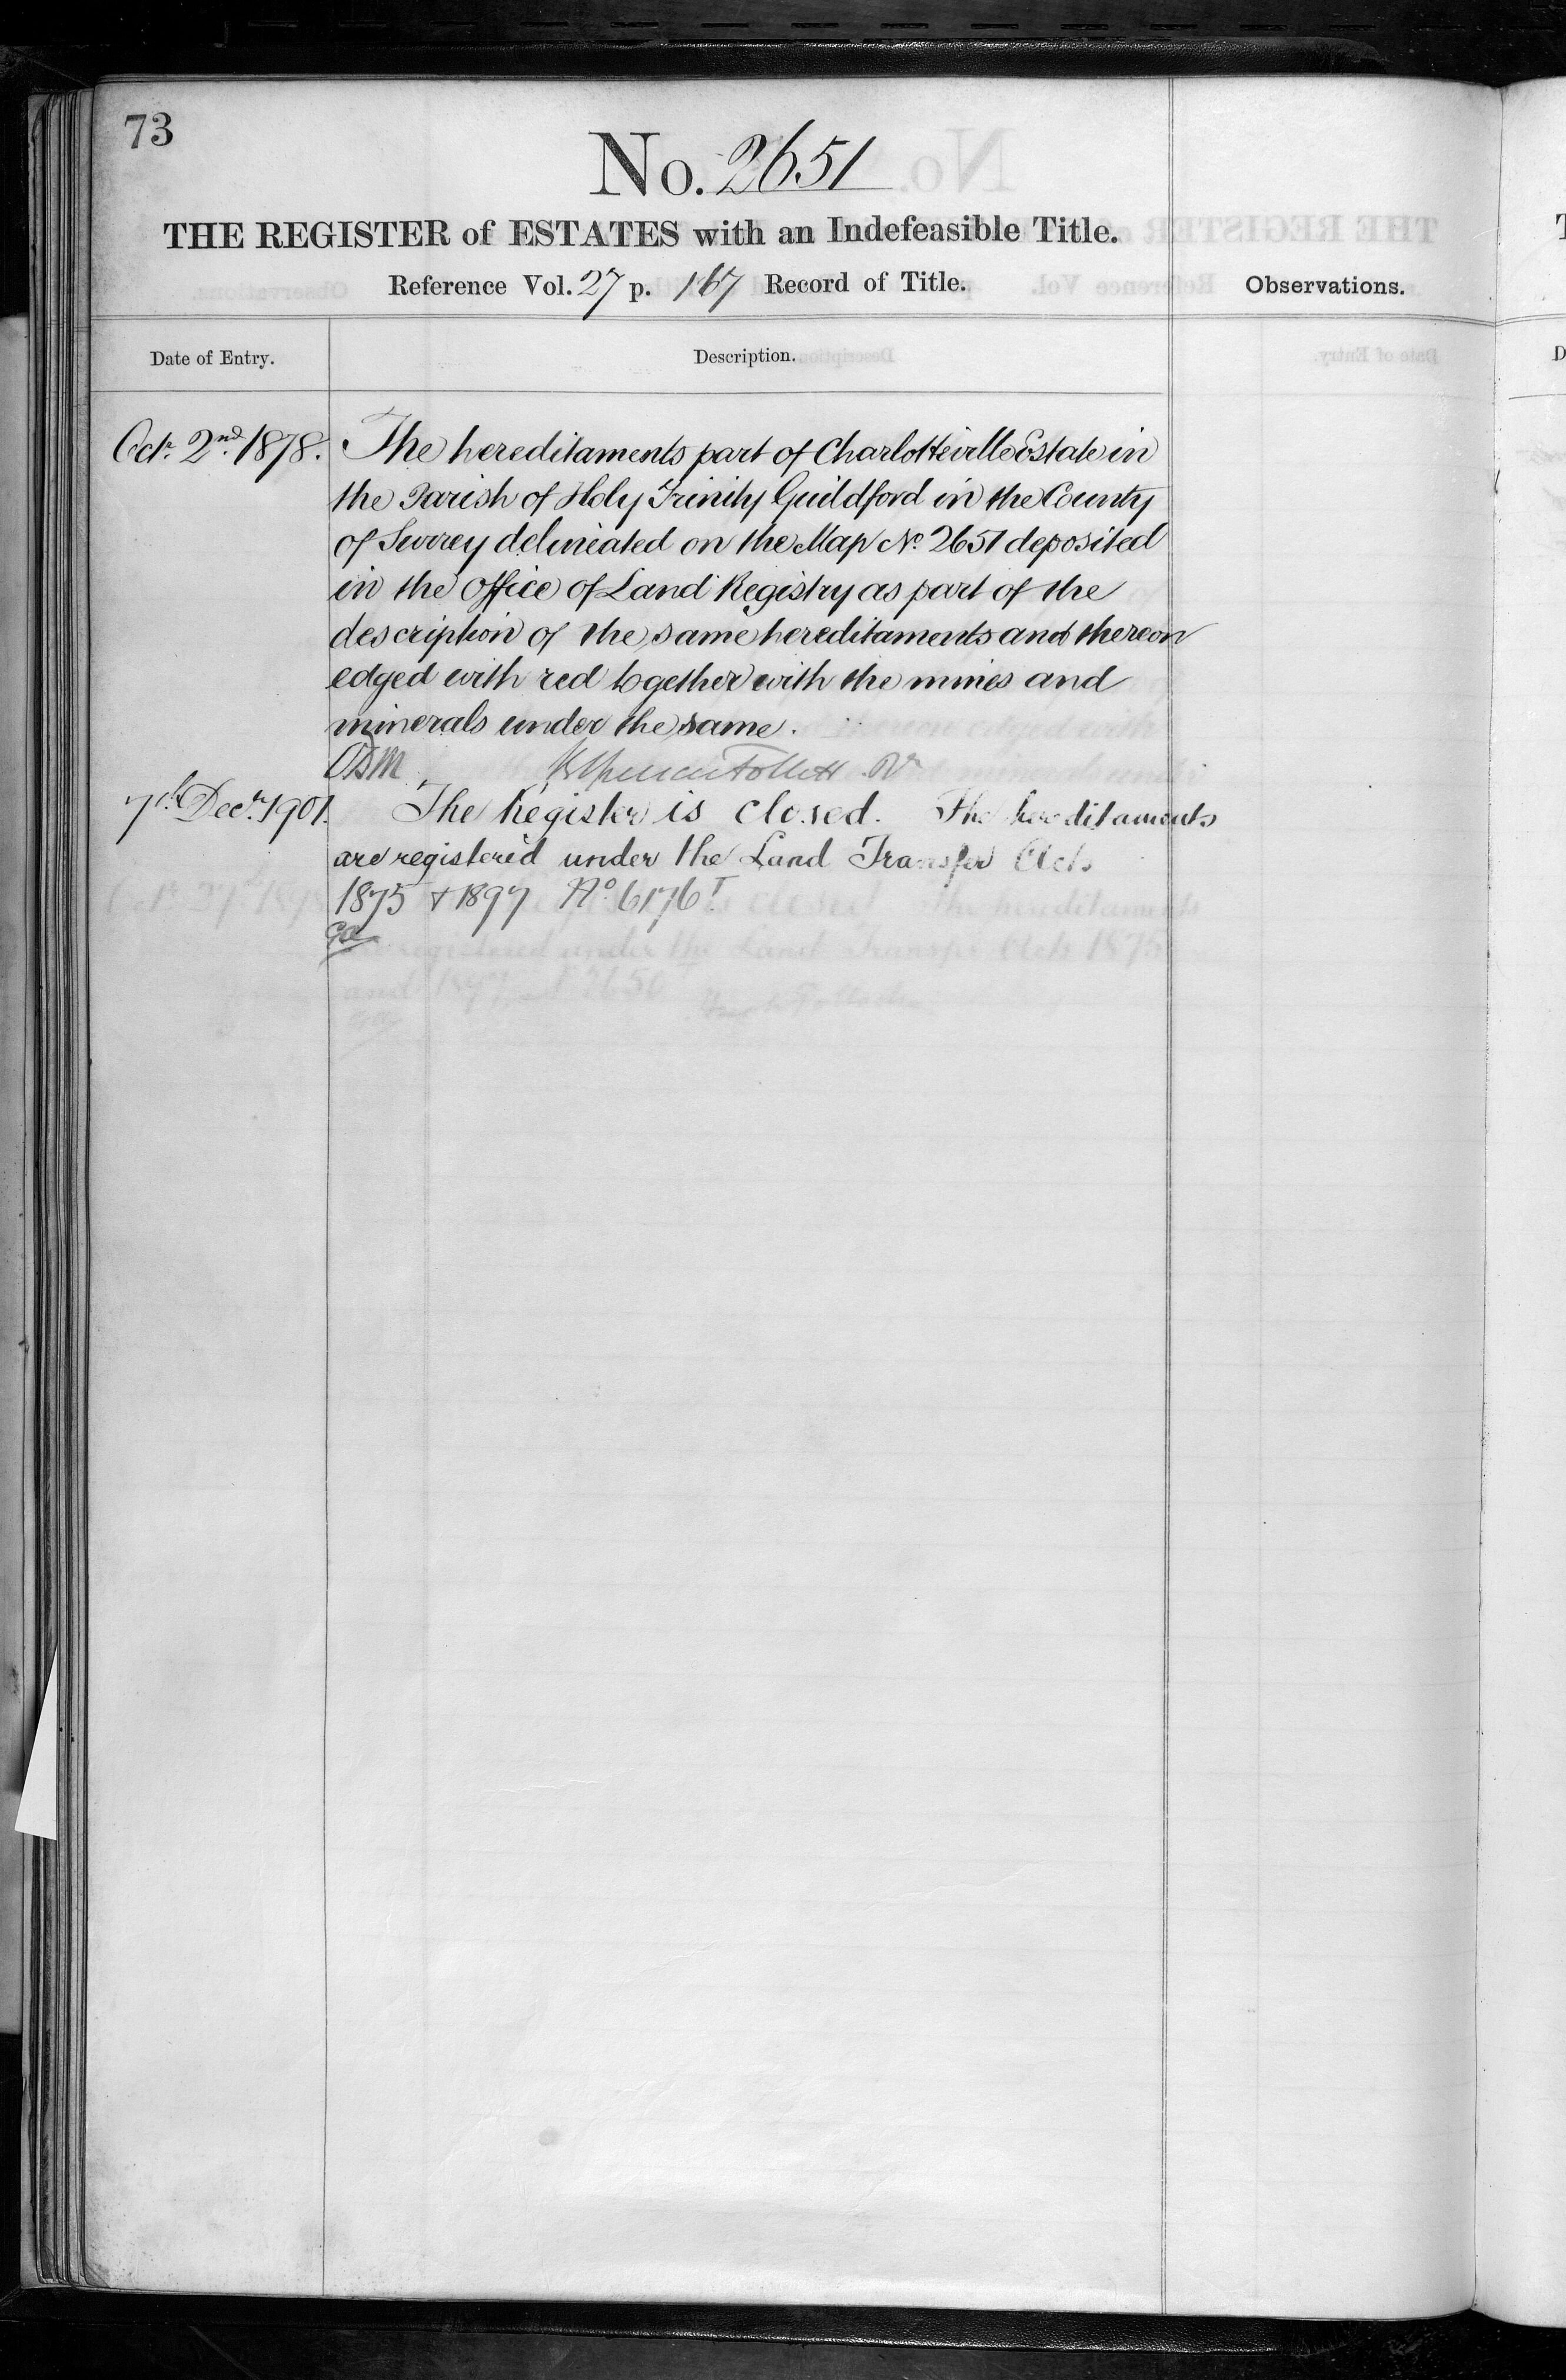 73
No. 2651
THE REGISTER of ESTATES with an Indefeasible Title.
Reference Vol. 27 p. 167 Record of Title.
Observations.
Date of Entry.
Description.
Octr. 2nd. 1878. The hereditaments part of Charlotteville Estate in
the Parish of Holy Trinity Guildford in the County
of Surrey delineated on the Map No. 2651 deposited
in the Office of Land Registry as part of the
description of the same hereditaments and thereon
edged with red together with the mines and
minerals under the same.
Follett
7th Decr. 1901. The Register is closed. The hereditaments
are registered under the Land Transfer Acts
1875 & 1897 No. 6176 I.